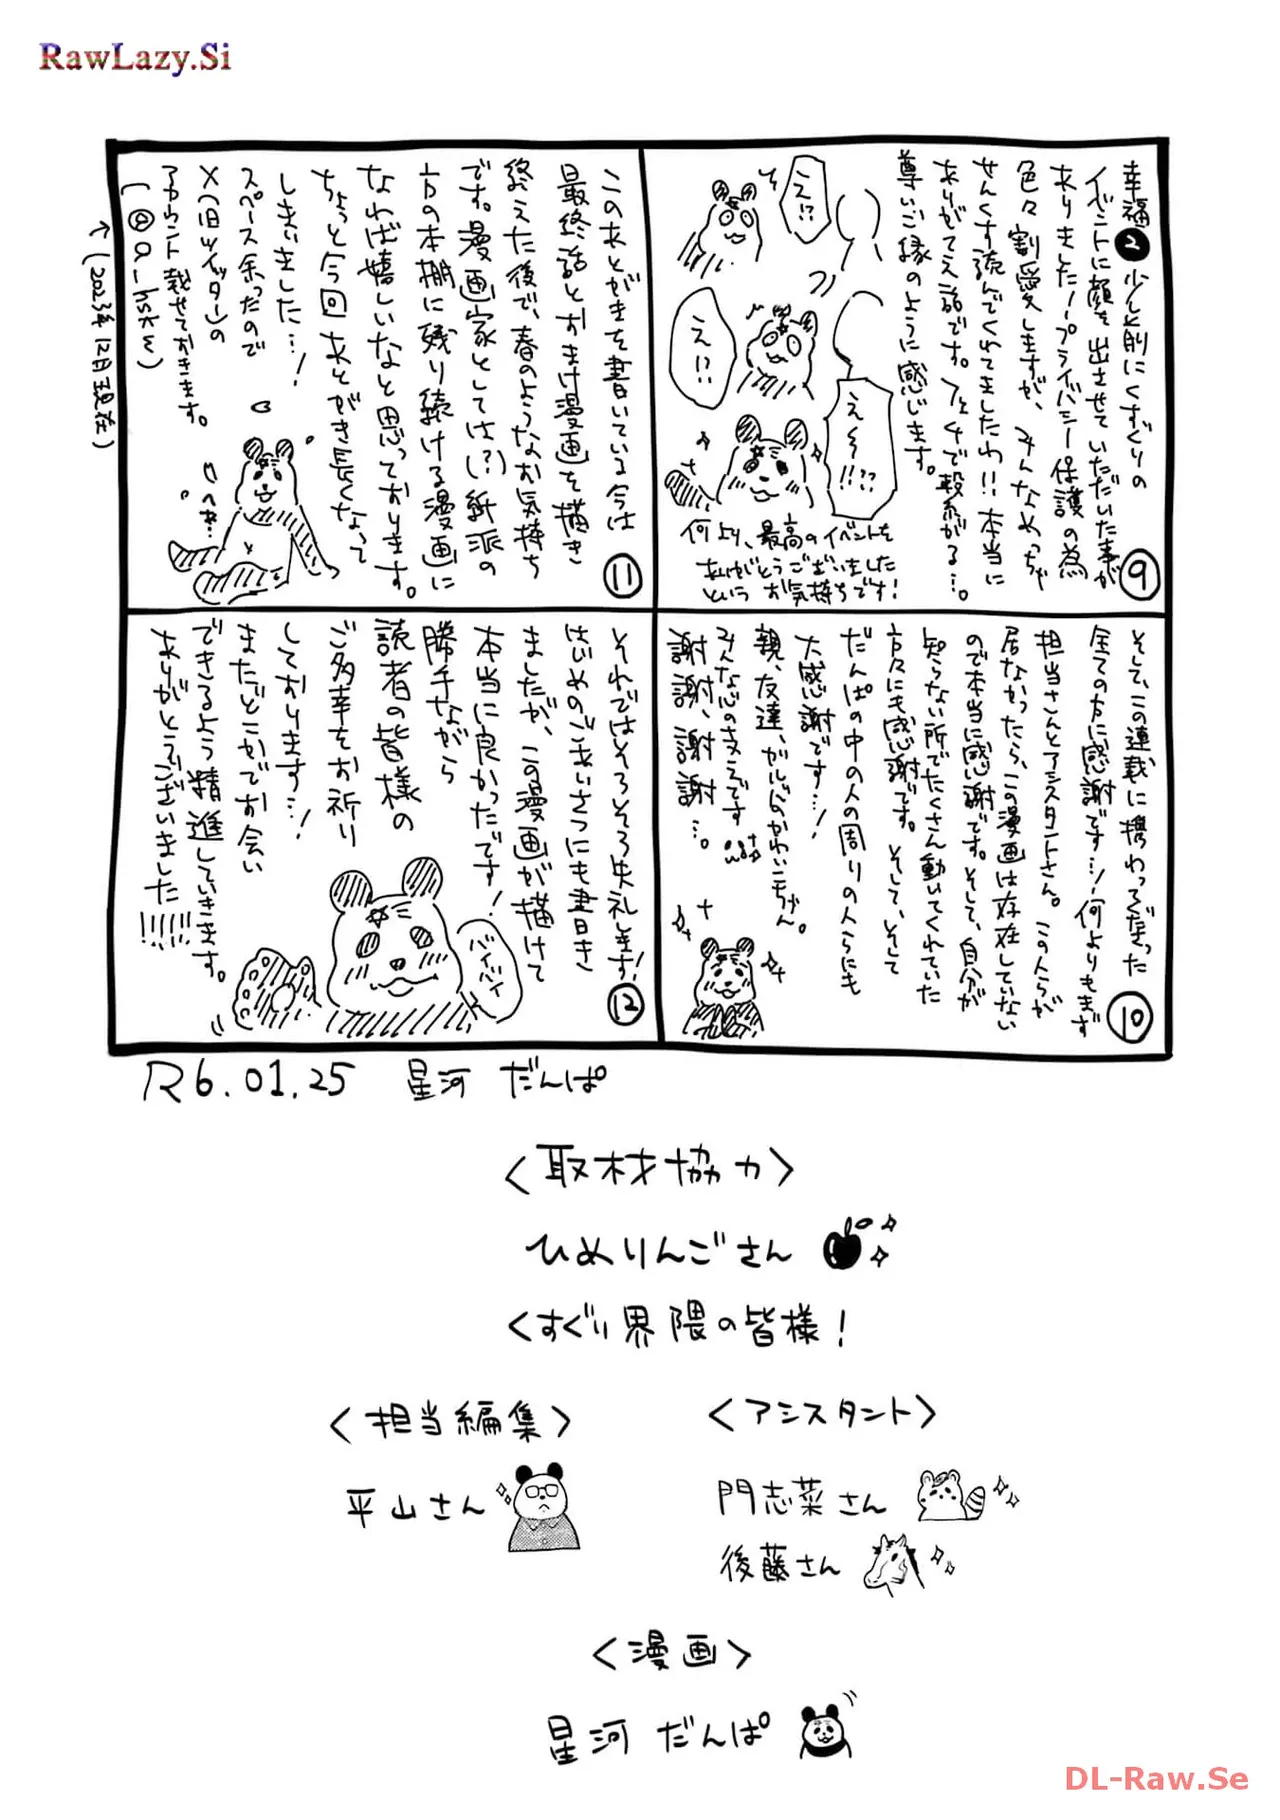 RawLazy.Si
幸福❷少し前にくすぐりの
イベントに顔を出させていただいた事が
ありました!プライバシー保護の為
色々割愛しますが、みんなめっちゃ
せんくす読んでくれてましたわ!!本当に
ありがてえ話です。フェチで繋がる…。
尊いご縁のように感じます。
え!?
え!?
え〜!!??
何より、最高のイベントを
ありがとうございました
というお気持ちです!
⑨
そして、この連載に携わってくださった
全ての方に感謝です…!何よりもまず
担当さんとアシスタントさん。この人らが
居なかったら、この漫画は存在していない
ので本当に感謝です。そして、自分が
知らない所でたくさん動いてくれていた
方々にも感謝です。そして、そして
だんぱの中の人の周りの人らにも
大感謝です…!
親、友達、ガルドのかわい子ちゃん。
みんな心の支えです
謝謝、謝謝…。
⑩
このあとがきを書いている今は
最終話とおまけ漫画を描き
終えた後で、春のようなお気持ち
です。漫画家としては(?)紙派の
方の本棚に残り続ける漫画に
なれば嬉しいなと思っております。
ちょっと今回あとがき長くなって
しまいました…!
スペース余ったので
X(旧ツイッター)の
アカウント載せておきます。
(2023年12月現在)
⑪
それではそろそろ失礼します!
はじめのごあいさつにも書き
ましたが、この漫画が描けて
本当に良かったです!
勝手ながら
読者の皆様の
ご多幸をお祈り
しております…!
またどこかでお会い
できるよう精進していきます。
ありがとうございました!!!!!
バイバイ
⑫
R6.01.25 星河 だんぱ
<取材協力>
ひめりんごさん
くすぐり界隈の皆様!
<担当編集>
平山さん
<アシスタント>
門志菜さん
後藤さん
<漫画>
星河 だんぱ
DL-Raw.Se